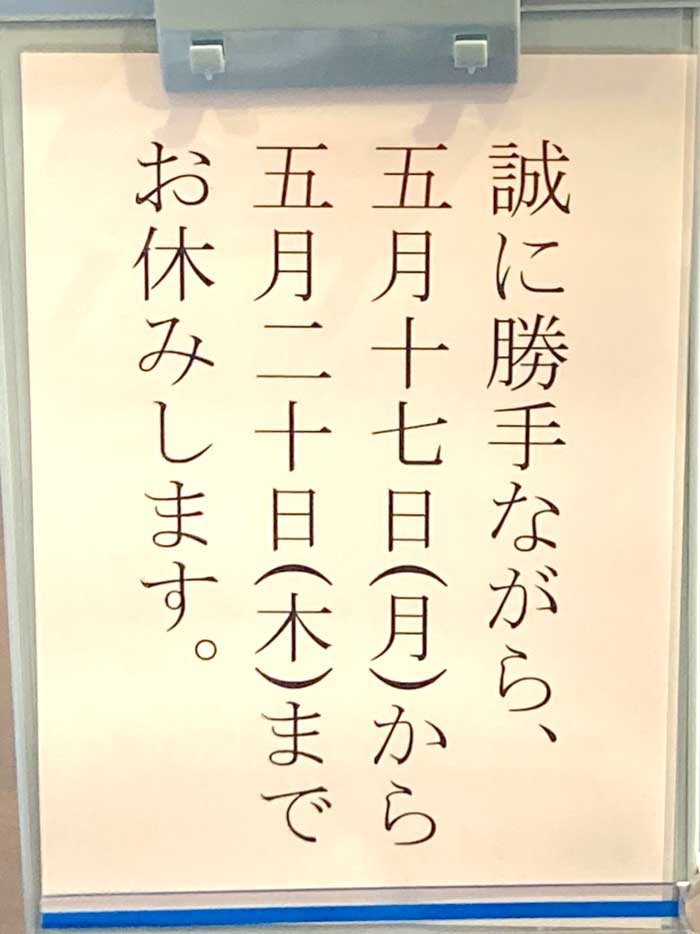 誠に勝手ながら、
五月十七日(月)から
五月二十日(木)まで
お休みします。